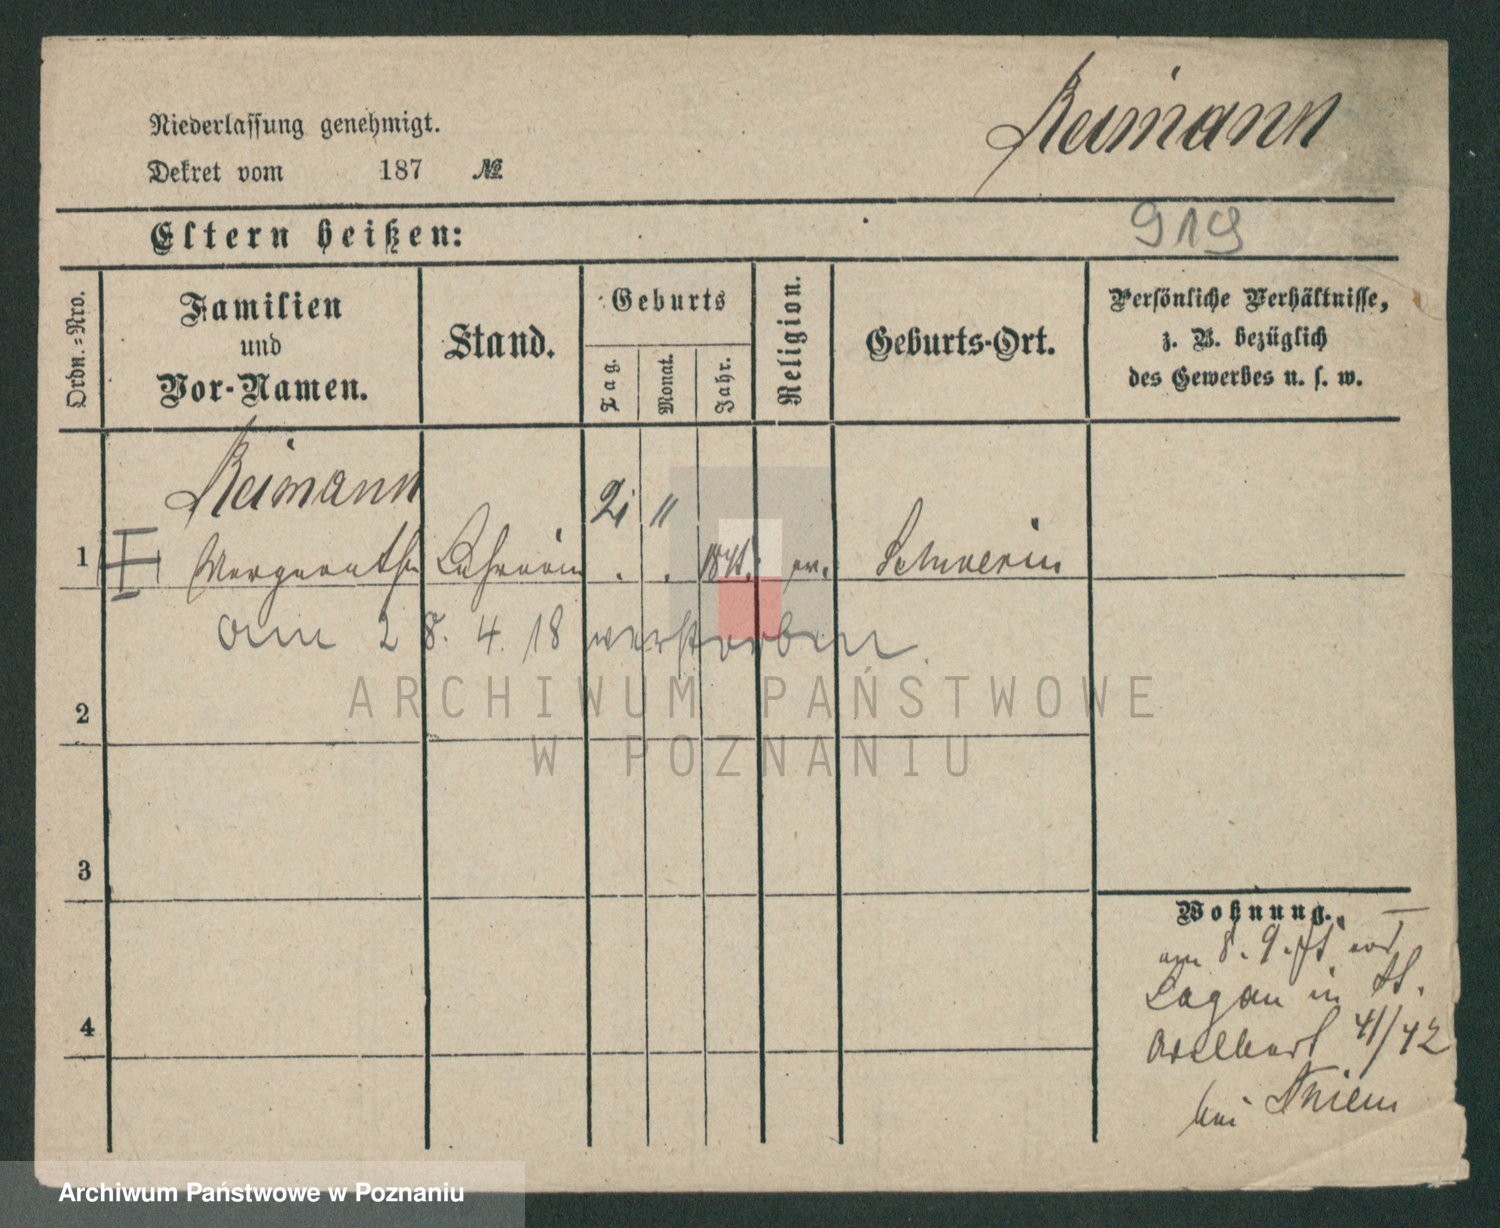 Niederlassung genehmigt.
Dekret vom 187 №
Reimann
919
Eltern heißen:
Ordn.=Nro.
Familien
und
Vor-Namen.
Stand.
Geburts
Tag.
Monat.
Jahr.
Religion.
Geburts-Ort.
Persönliche Verhältnisse,
z. B. bezüglich
des Gewerbes u. s. w.
Reimann
21 11
1 Margarethe Lehrerin ev. Schwerin
am 28. 4. 18 verstorben.
2
3
4
Wohnung.
am 8. 9. aus
Sagan in St.
Adalbert 41/42
bei Thiem
ARCHIWUM PAŃSTWOWE
W POZNANIU
Archiwum Państwowe w Poznaniu